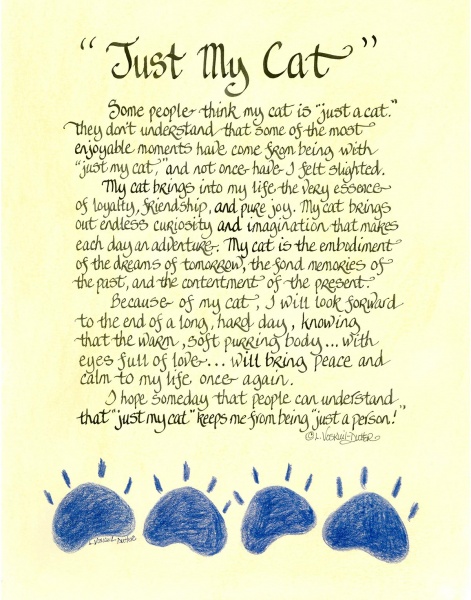 "Just My Cat"
Some people think my cat is "just a cat."
They don't understand that some of the most
enjoyable moments have come from being with
"just my cat," and not once have I felt slighted.
My cat brings into my life the very essence
of loyalty, friendship, and pure joy. My cat brings
out endless curiosity and imagination that makes
each day an adventure. My cat is the embodiment
of the dreams of tomorrow, the fond memories of
the past, and the contentment of the present.
Because of my cat, I will look forward
to the end of a long, hard day, knowing
that the warm, soft purring body... with
eyes full of love... will bring peace and
calm to my life once again.
I hope someday that people can understand
that "just my cat" keeps me from being "just a person!"
© L. Voskuil-Dutter
L. Voskuil-Dutter